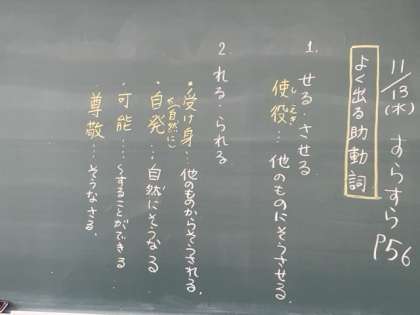 11/13(水) すらすら P56
よく出る助動詞
1. せる・させる
使役…他のものにそうさせる。
2. れる・られる
・受け身…他のものからそうされる。
・自発…自然にそうなる
(自然に)
・可能…～することができる
・尊敬…そうなさる。